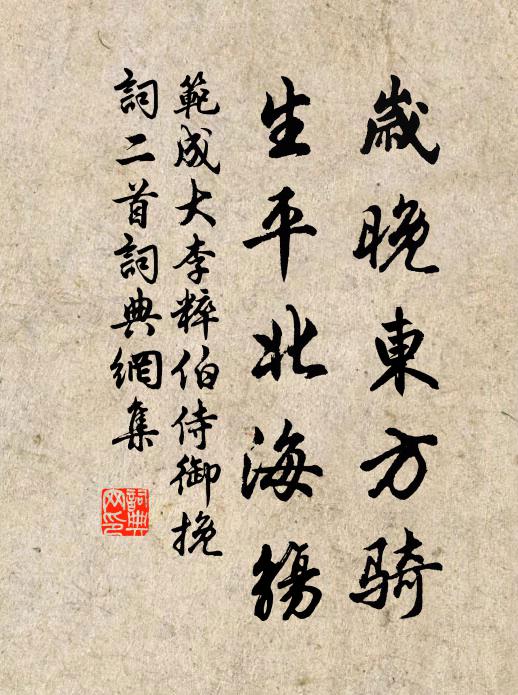 歲晚東方騎
生平北海觴
範成大李粹伯侍御挽
詞二首詞典網集
詞典网印